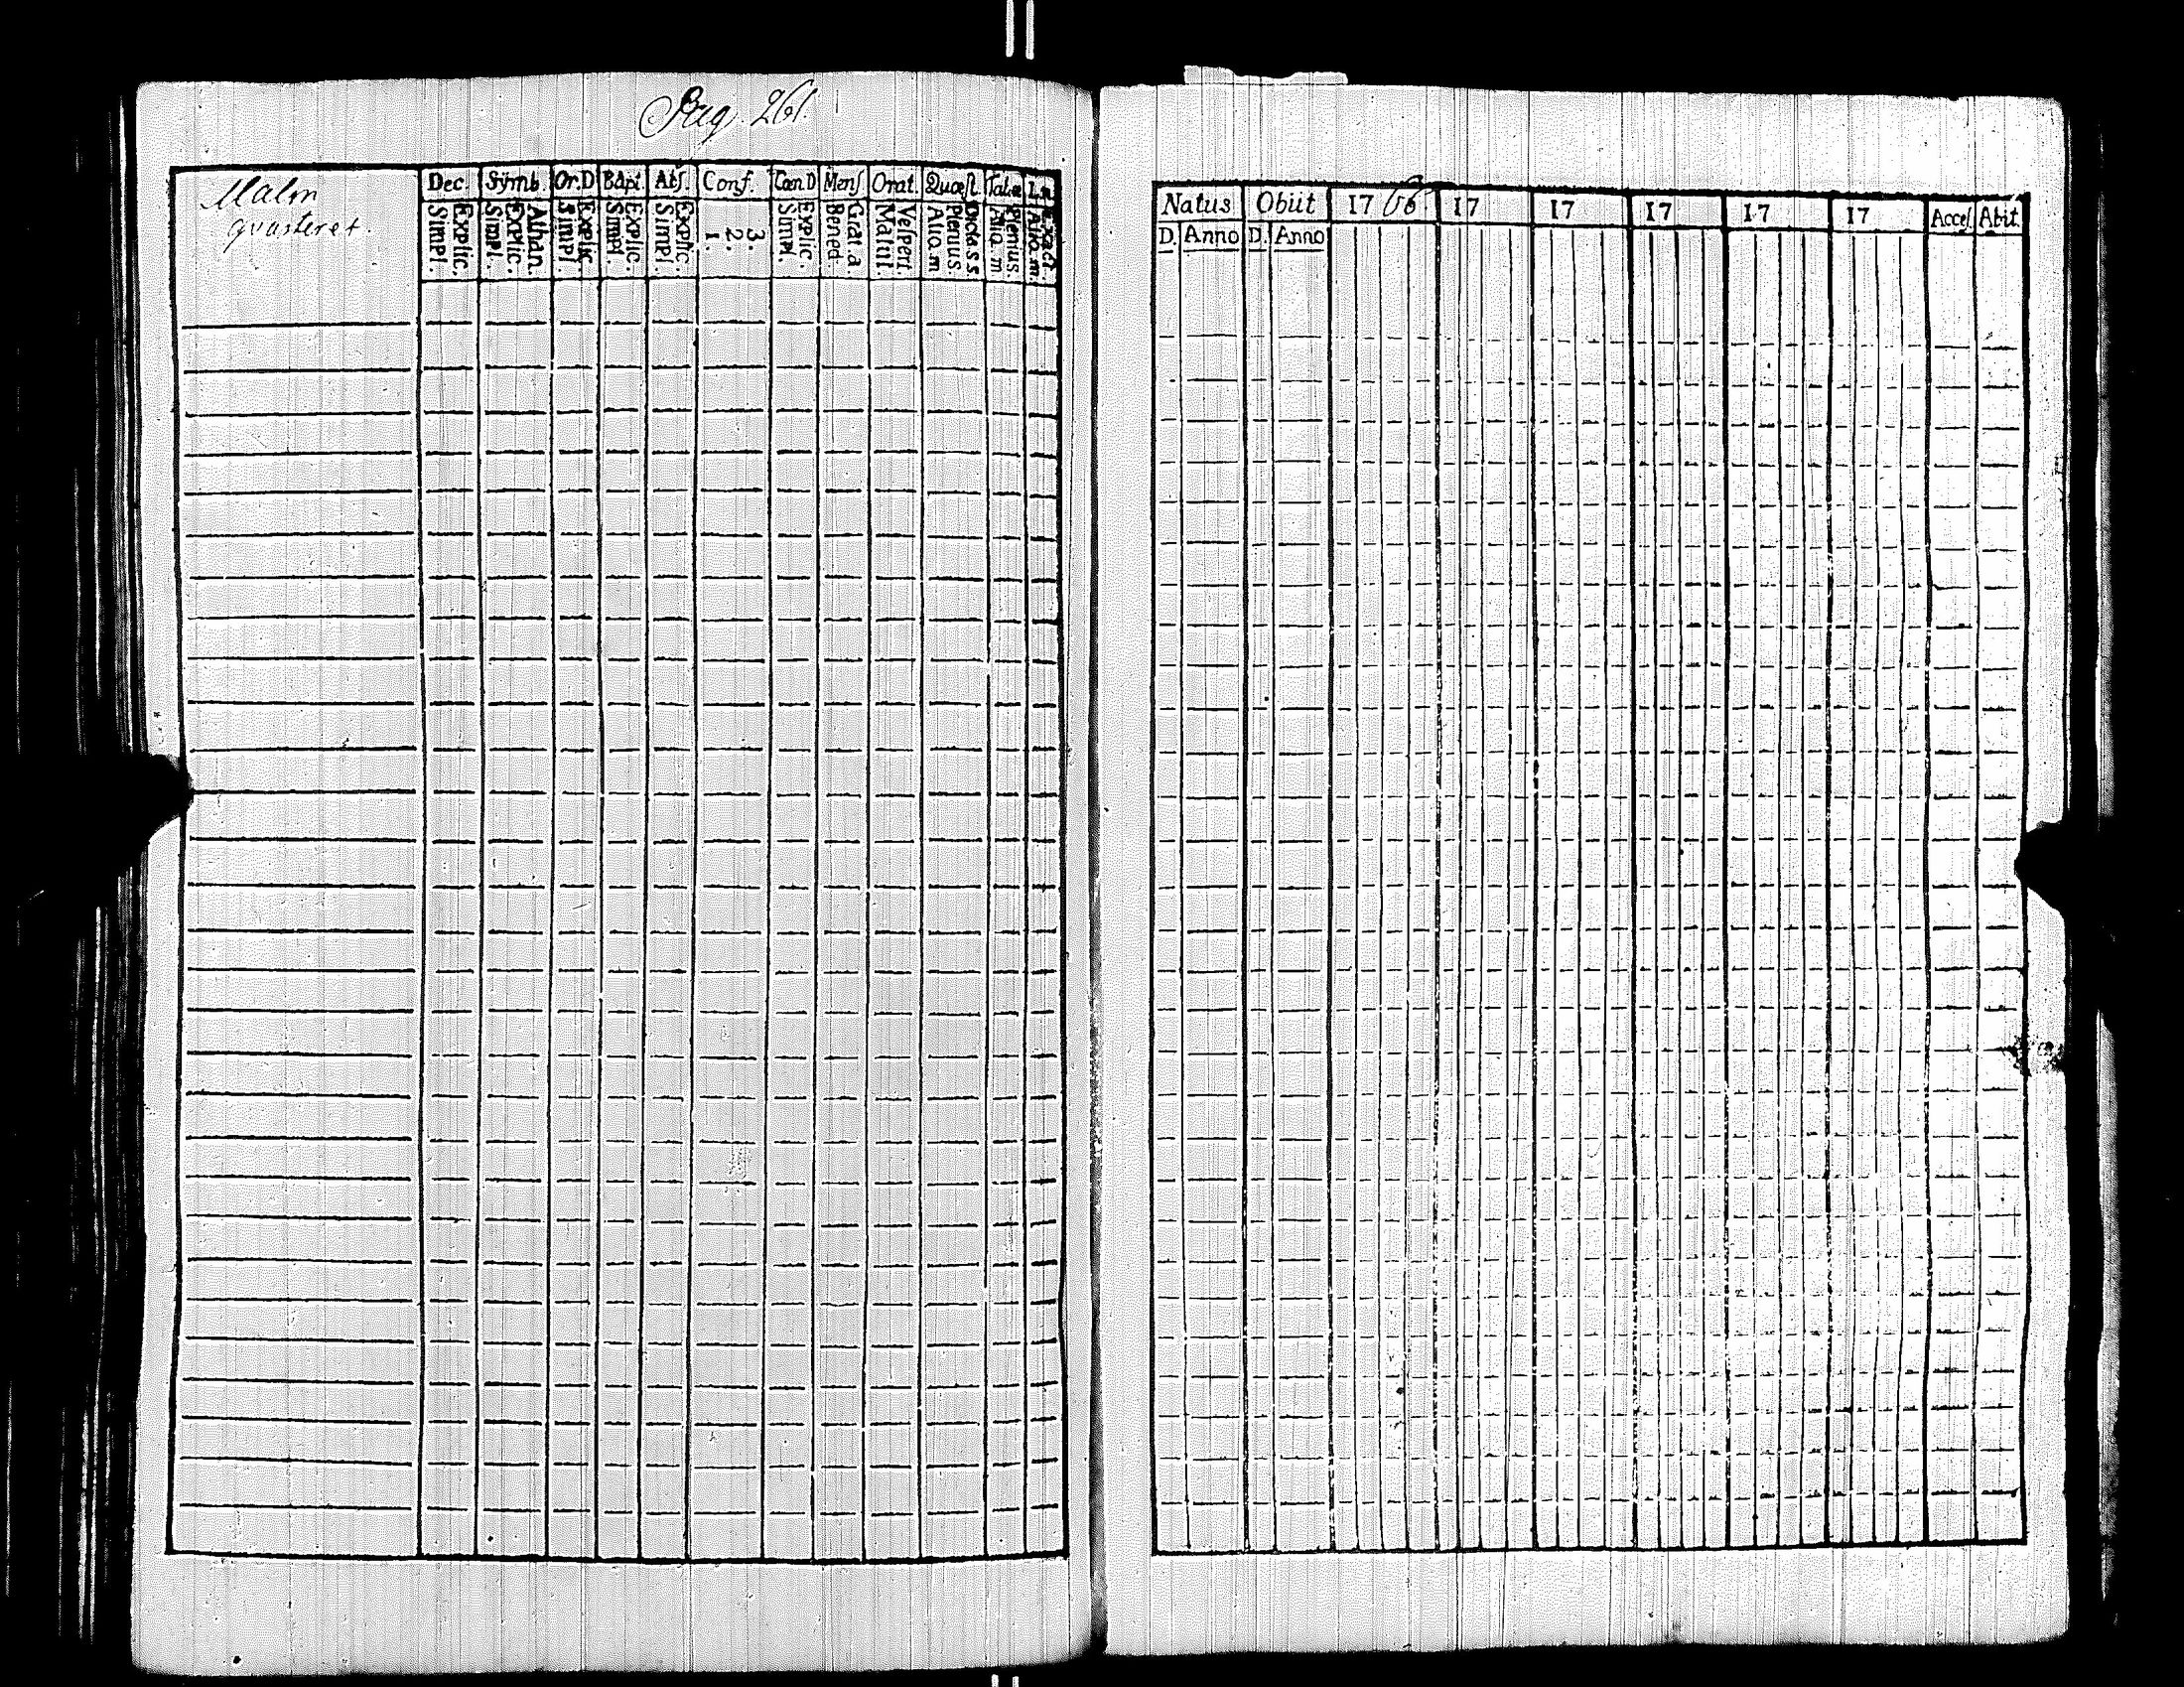 Pag. 261.
Malm
qvarteret.
Dec. Symb. Or.D Bapt. Abſ. Conf. Cœn.D Menſ Orat. Quæſt. Tab.œ
Simpl. Explic. Simpl. Explic. Athan. Simpl. Explic. Simpl. Explic. Simpl. Explic. 1. 2. 3. Simpl. Explic. Bened. Grat.a. Matut. Veſpert. Aliq.m Plenius Dicta s.s. Aliq.m Plenius. Aliq.m. Exact.
Natus Obiit 1766. 17 17 17 17 17 Acceſ. Abiit.
D. Anno D. Anno